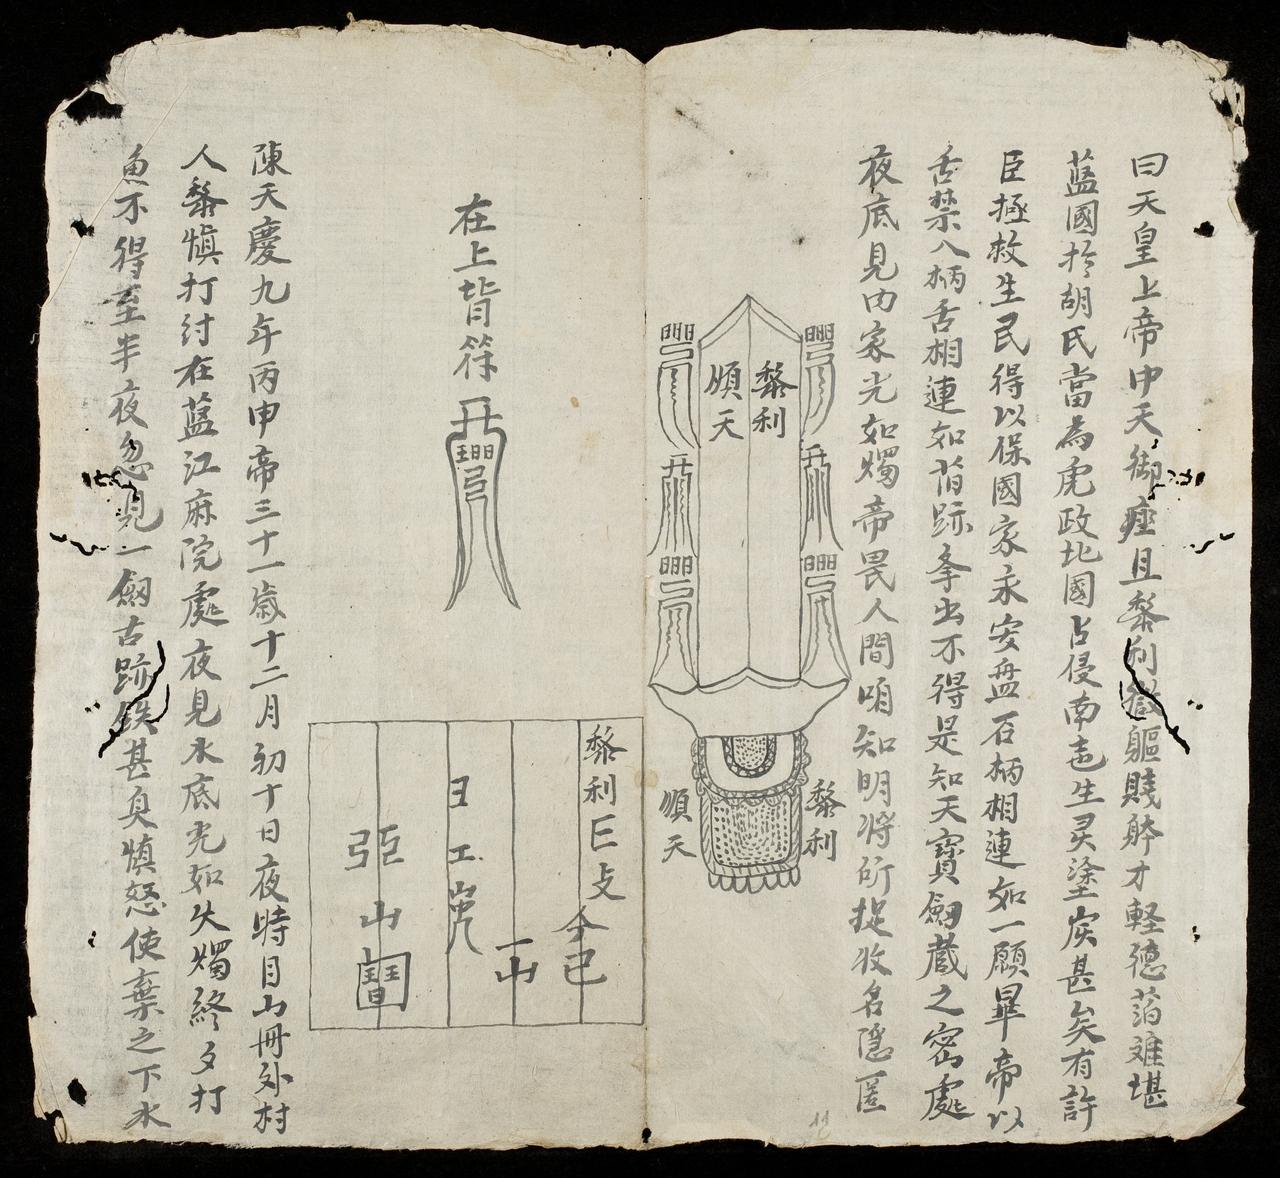 曰天皇上帝中天御座且黎利微軀賤骵才軽德萡难堪
蓝國扵胡氏當為虐政北國占侵南邑生灵塗炭甚矣有許
臣拯救生民得以保國家永安盘石柄相連如一願畢帝以
舌禁入柄舌相連如前跡拿出不得是知天寶劔蔵之宻處
夜底見内家光如燭帝畏人間咱知明將斫捉收名隠匿
黎利
順天
黎利
順天
在上皆符
黎利
今己
一山
日工
山
陳天慶九年丙申帝三十一歳十二月初十日夜時目山冊外村
人黎慎打紂在蓝江麻院處夜見水底光如火燭終夕打
魚不得至半夜忽見一劔古跡鉄甚臭慎怒使棄之下水